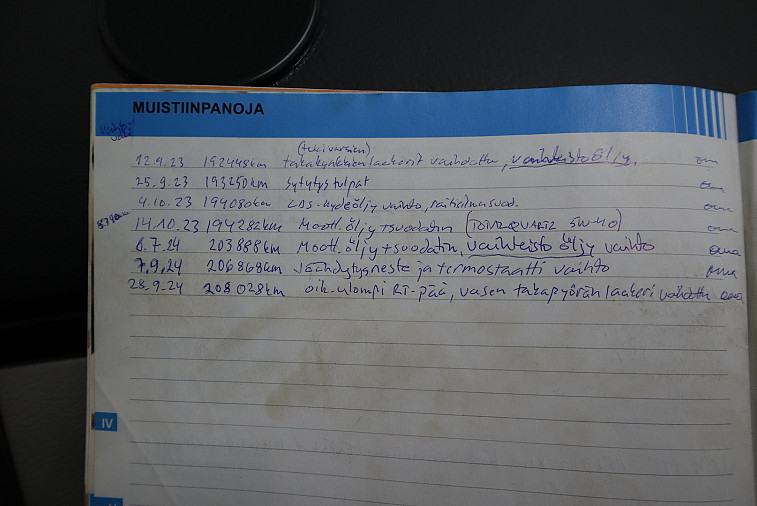 MUISTIINPANOJA
(tukivarsien)
12.9.23 192448km takakynkkien laakerit vaihdettu, vaihteistoöljy, oma
25.9.23 193250km sytytystulpat oma
4.10.23 194080km LDS-hydeöljy vaihto, raitisilmasuod. oma
14.10.23 194282km Moott. öljy + suodatin (TOTAL QUARTZ 5W-40) oma
6.7.24 203888km Moott. öljy + suodatin, vaihteisto öljy vaihto oma
7.9.24 206868km Jäähdytysneste ja termostaatti vaihto oma
28.9.24 208028km oik. ulompi RT-pää, vasen takapyörän laakeri vaihdettu oma
IV